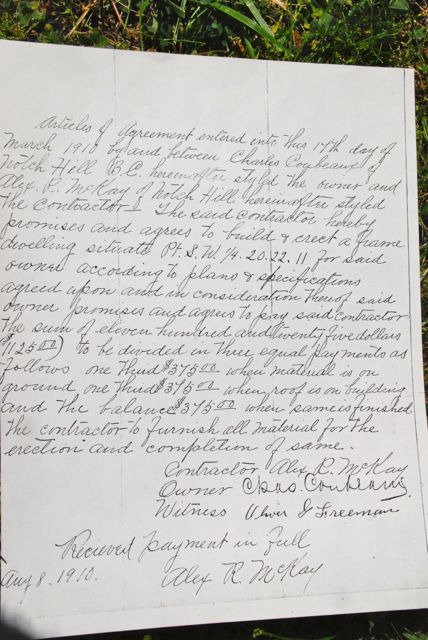 Articles of Agreement entered into this 17th day of
March 1910 by and between Charles Coubeaux of
Notch Hill B.C. hereinafter styled the owner and
Alex. R. McKay of Notch Hill hereinafter styled
the contractor The said contractor hereby
promises and agrees to build & erect a frame
dwelling situate Pt. S.W. 1/4. 20.22.11 for said
owner according to plans & specifications
agreed upon and in consideration thereof said
owner promises and agrees to pay said contractor
the sum of eleven hundred and twenty five dollars
$1125 00) to be divided in three equal payments as
follows one third $375 00 when material is on
ground one third $375 00 when roof is on building
and the balance $375 00 when same is finished
the contractor to furnish all material for the
erection and completion of same.
Contractor Alex R. McKay
Owner Chas. Coubeaux
Witness Freeman
Recieved payment in Full
Aug 8. 1910. Alex R. McKay